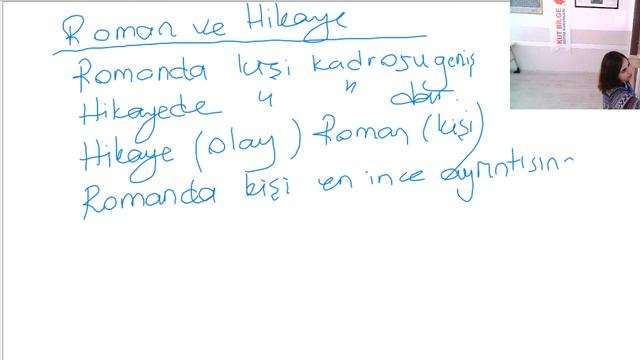 Roman ve Hikaye
Romanda kişi kadrosu geniş
Hikayede " " dar.
Hikaye (olay) Roman (kişi)
Romanda kişi en ince ayrıntısın-
KUT BİLGE